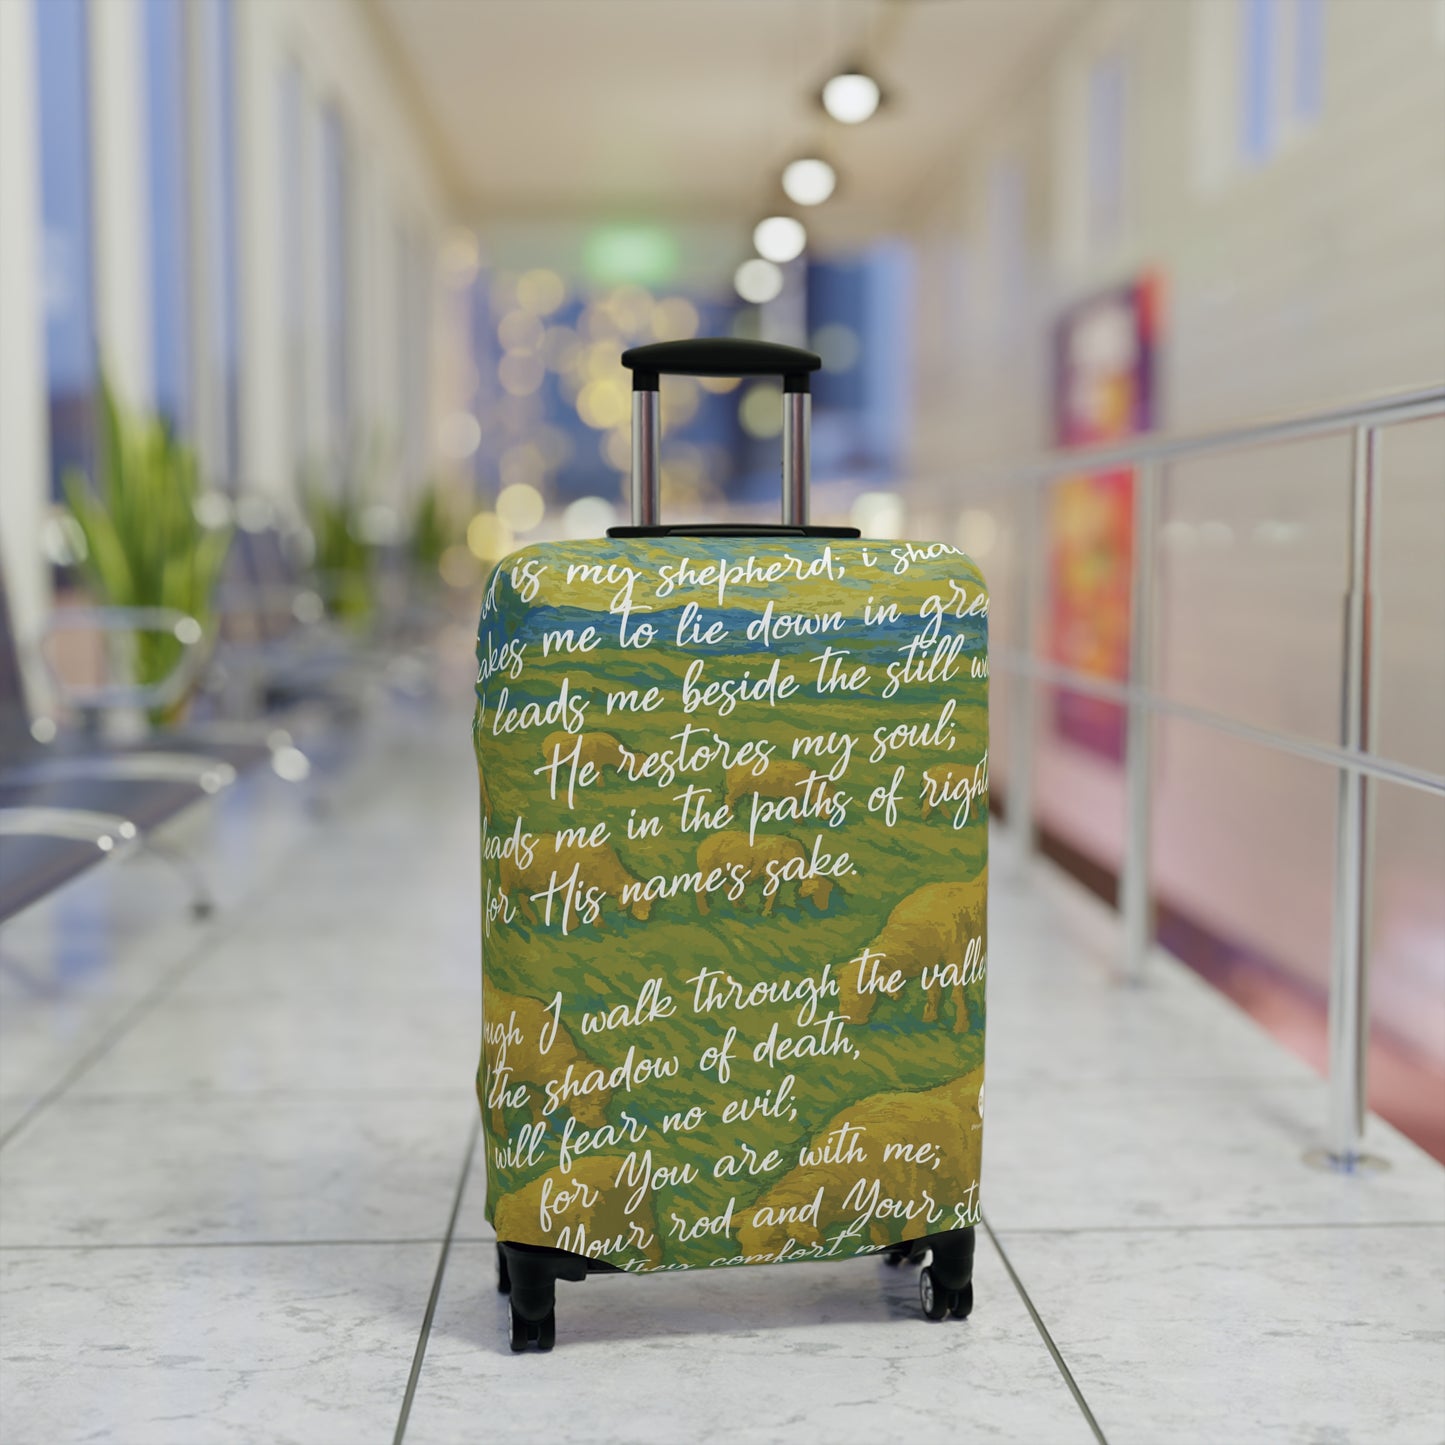 is my shepherd; i
me to lie down in
leads me beside the still
He restores my soul;
me in the paths of
for His name's sake.
I walk through the
the shadow of death,
will fear no evil;
for You are with me;
Your rod and Your
they comfort